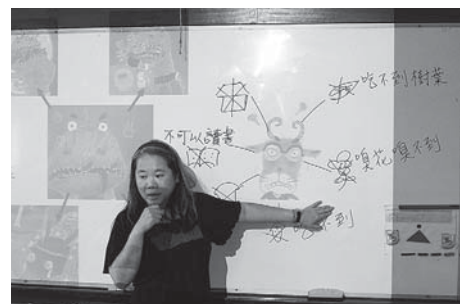 吃不到樹葉
不可以讀書
嗅花嗅不到
吃不到